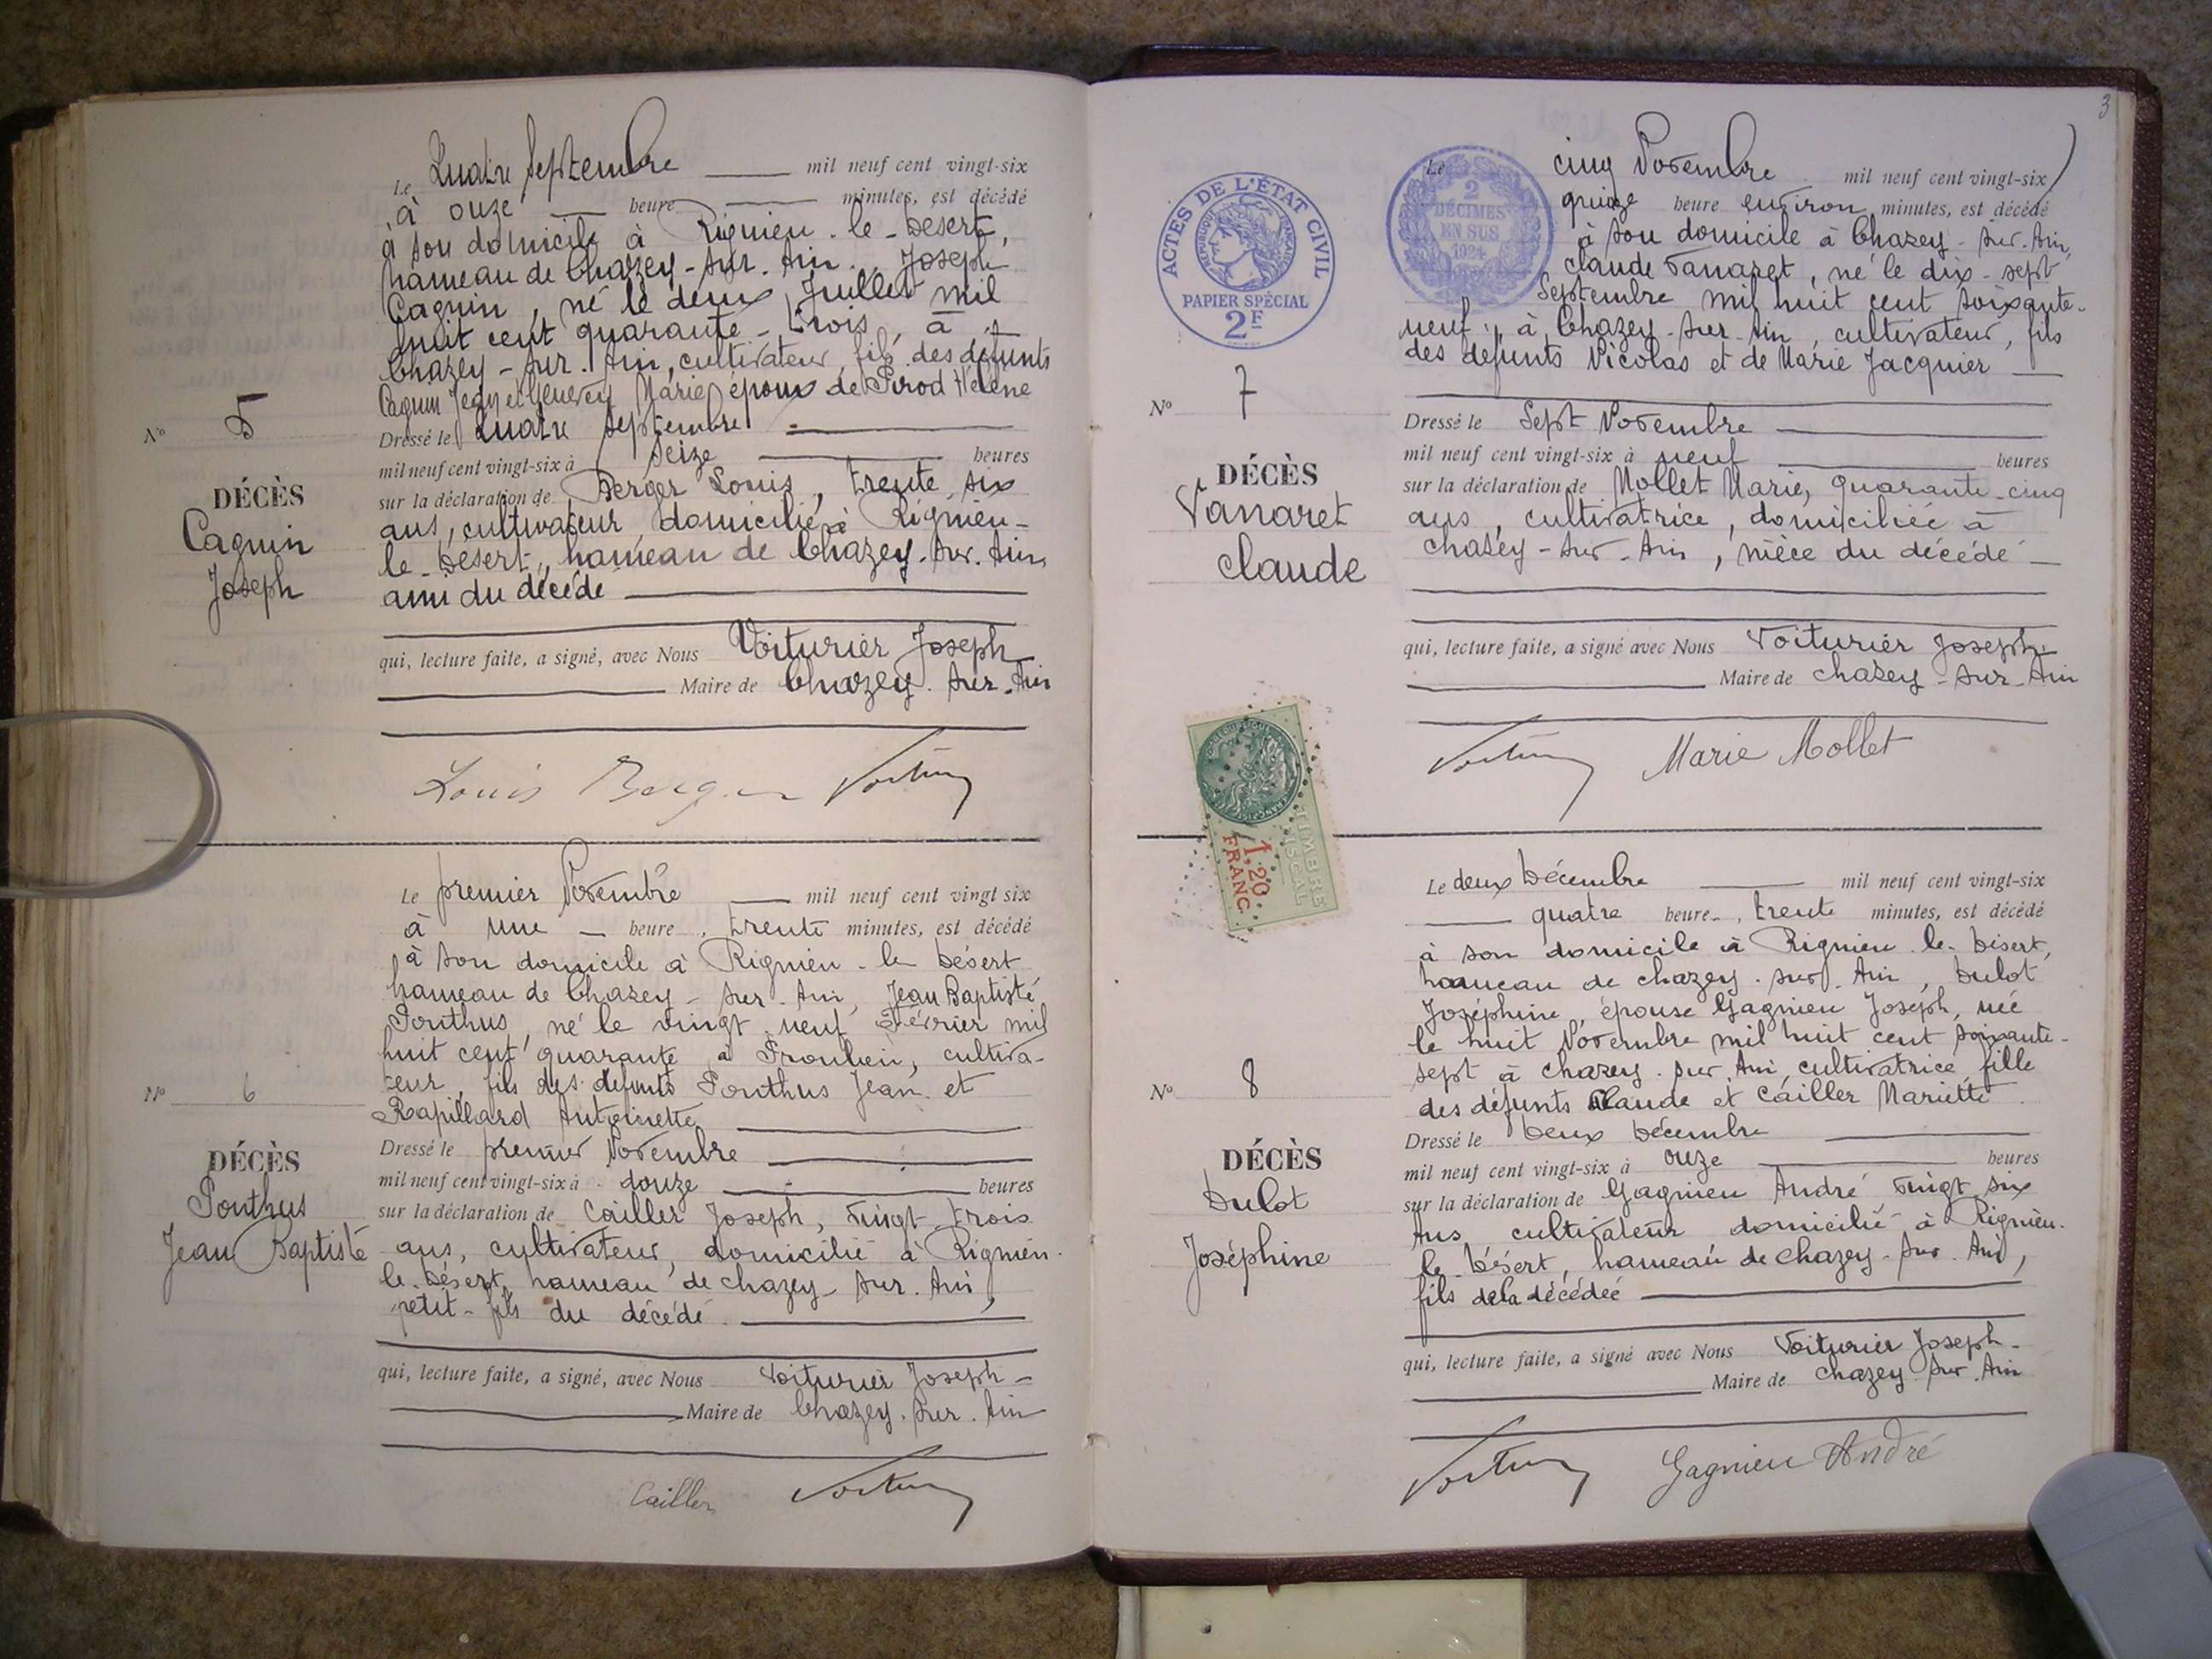 Le Quatre Septembre mil neuf cent vingt-six
à onze heure minutes, est décédé
à son domicile à Rignieu-le-Desert,
hameau de Chazey-sur-Ain, Joseph
Caguin, né le deux Juillet mil
huit cent quarante-trois, à
Chazey-sur-Ain, cultivateur, fils des défunts
Caguin Jean et Genevey Marie, époux de Pirod Hélène
N° 5
Dressé le Quatre Septembre
mil neuf cent vingt-six à seize heures
DÉCÈS
Caguin
Joseph
sur la déclaration de Berger Louis, trente six
ans, cultivateur domicilié à Rignieu-
le-Desert, hameau de Chazey-sur-Ain,
ami du décédé
qui, lecture faite, a signé, avec Nous Voiturier Joseph
Maire de Chazey-sur-Ain
Louis Berger
Le premier Novembre mil neuf cent vingt six
à une heure, trente minutes, est décédé
à son domicile à Rignieu-le Désert
hameau de Chazey-sur-Ain, Jean Baptiste
Ponthus, né le vingt neuf Février mil
huit cent quarante à Proulieu, cultiva-
teur, fils des défunts Ponthus Jean et
Rapillard Antoinette
N° 6
Dressé le premier Novembre
mil neuf cent vingt-six à douze heures
DÉCÈS
Ponthus
Jean Baptiste
sur la déclaration de Cailler Joseph, vingt trois
ans, cultivateur, domicilié à Rignieu-
le-Désert, hameau de Chazey-sur-Ain,
petit-fils du décédé
qui, lecture faite, a signé, avec Nous Voiturier Joseph-
Maire de Chazey-sur-Ain
Cailler
3
ACTES DE L'ÉTAT CIVIL
RÉPUBLIQUE FRANÇAISE
PAPIER SPÉCIAL
2F
2
DÉCIMES
EN SUS
1924
Le cinq Novembre mil neuf cent vingt-six
quinze heure environ minutes, est décédé
à son domicile à Chazey-sur-Ain,
Claude Vanaret, né le dix-sept
Septembre mil huit cent soixante-
neuf, à Chazey-sur-Ain, cultivateur, fils
des défunts Nicolas et de Marie Jacquier
N° 7
Dressé le Sept Novembre
mil neuf cent vingt-six à neuf heures
DÉCÈS
Vanaret
Claude
sur la déclaration de Mollet Marie, quarante-cinq
ans, cultivatrice, domiciliée à
Chazey-sur-Ain, nièce du décédé
qui, lecture faite, a signé avec Nous Voiturier Joseph
Maire de Chazey-sur-Ain
Marie Mollet
TIMBRE
FISCAL
1.20
FRANC
Le deux Décembre mil neuf cent vingt-six
quatre heure, trente minutes, est décédé
à son domicile à Rignieu-le-Désert,
hameau de Chazey-sur-Ain, Dulot
Joséphine, épouse Gagnieu Joseph, née
le huit Novembre mil huit cent soixante-
sept à Chazey-sur-Ain, cultivatrice, fille
des défunts Claude et Cailler Mariette.
N° 8
Dressé le Deux Décembre
mil neuf cent vingt-six à onze heures
DÉCÈS
Dulot
Joséphine
sur la déclaration de Gagnieu André vingt six
Ans cultivateur domicilié à Rignieu-
le-Désert, hameau de Chazey-sur-Ain,
fils de la décédée
qui, lecture faite, a signé avec Nous Voiturier Joseph-
Maire de Chazey-sur-Ain
Gagnieu André